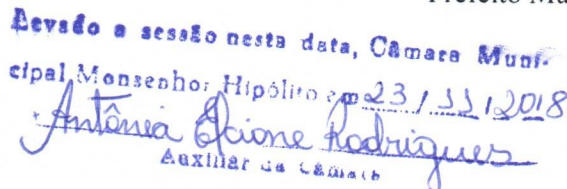 Prefeito Mu
Levado a sessão nesta data, Câmara Muni-
cipal, Monsenhor Hipólito em 23 / 11 / 2018
Antônia Elcione Rodrigues
Auxiliar da Câmara